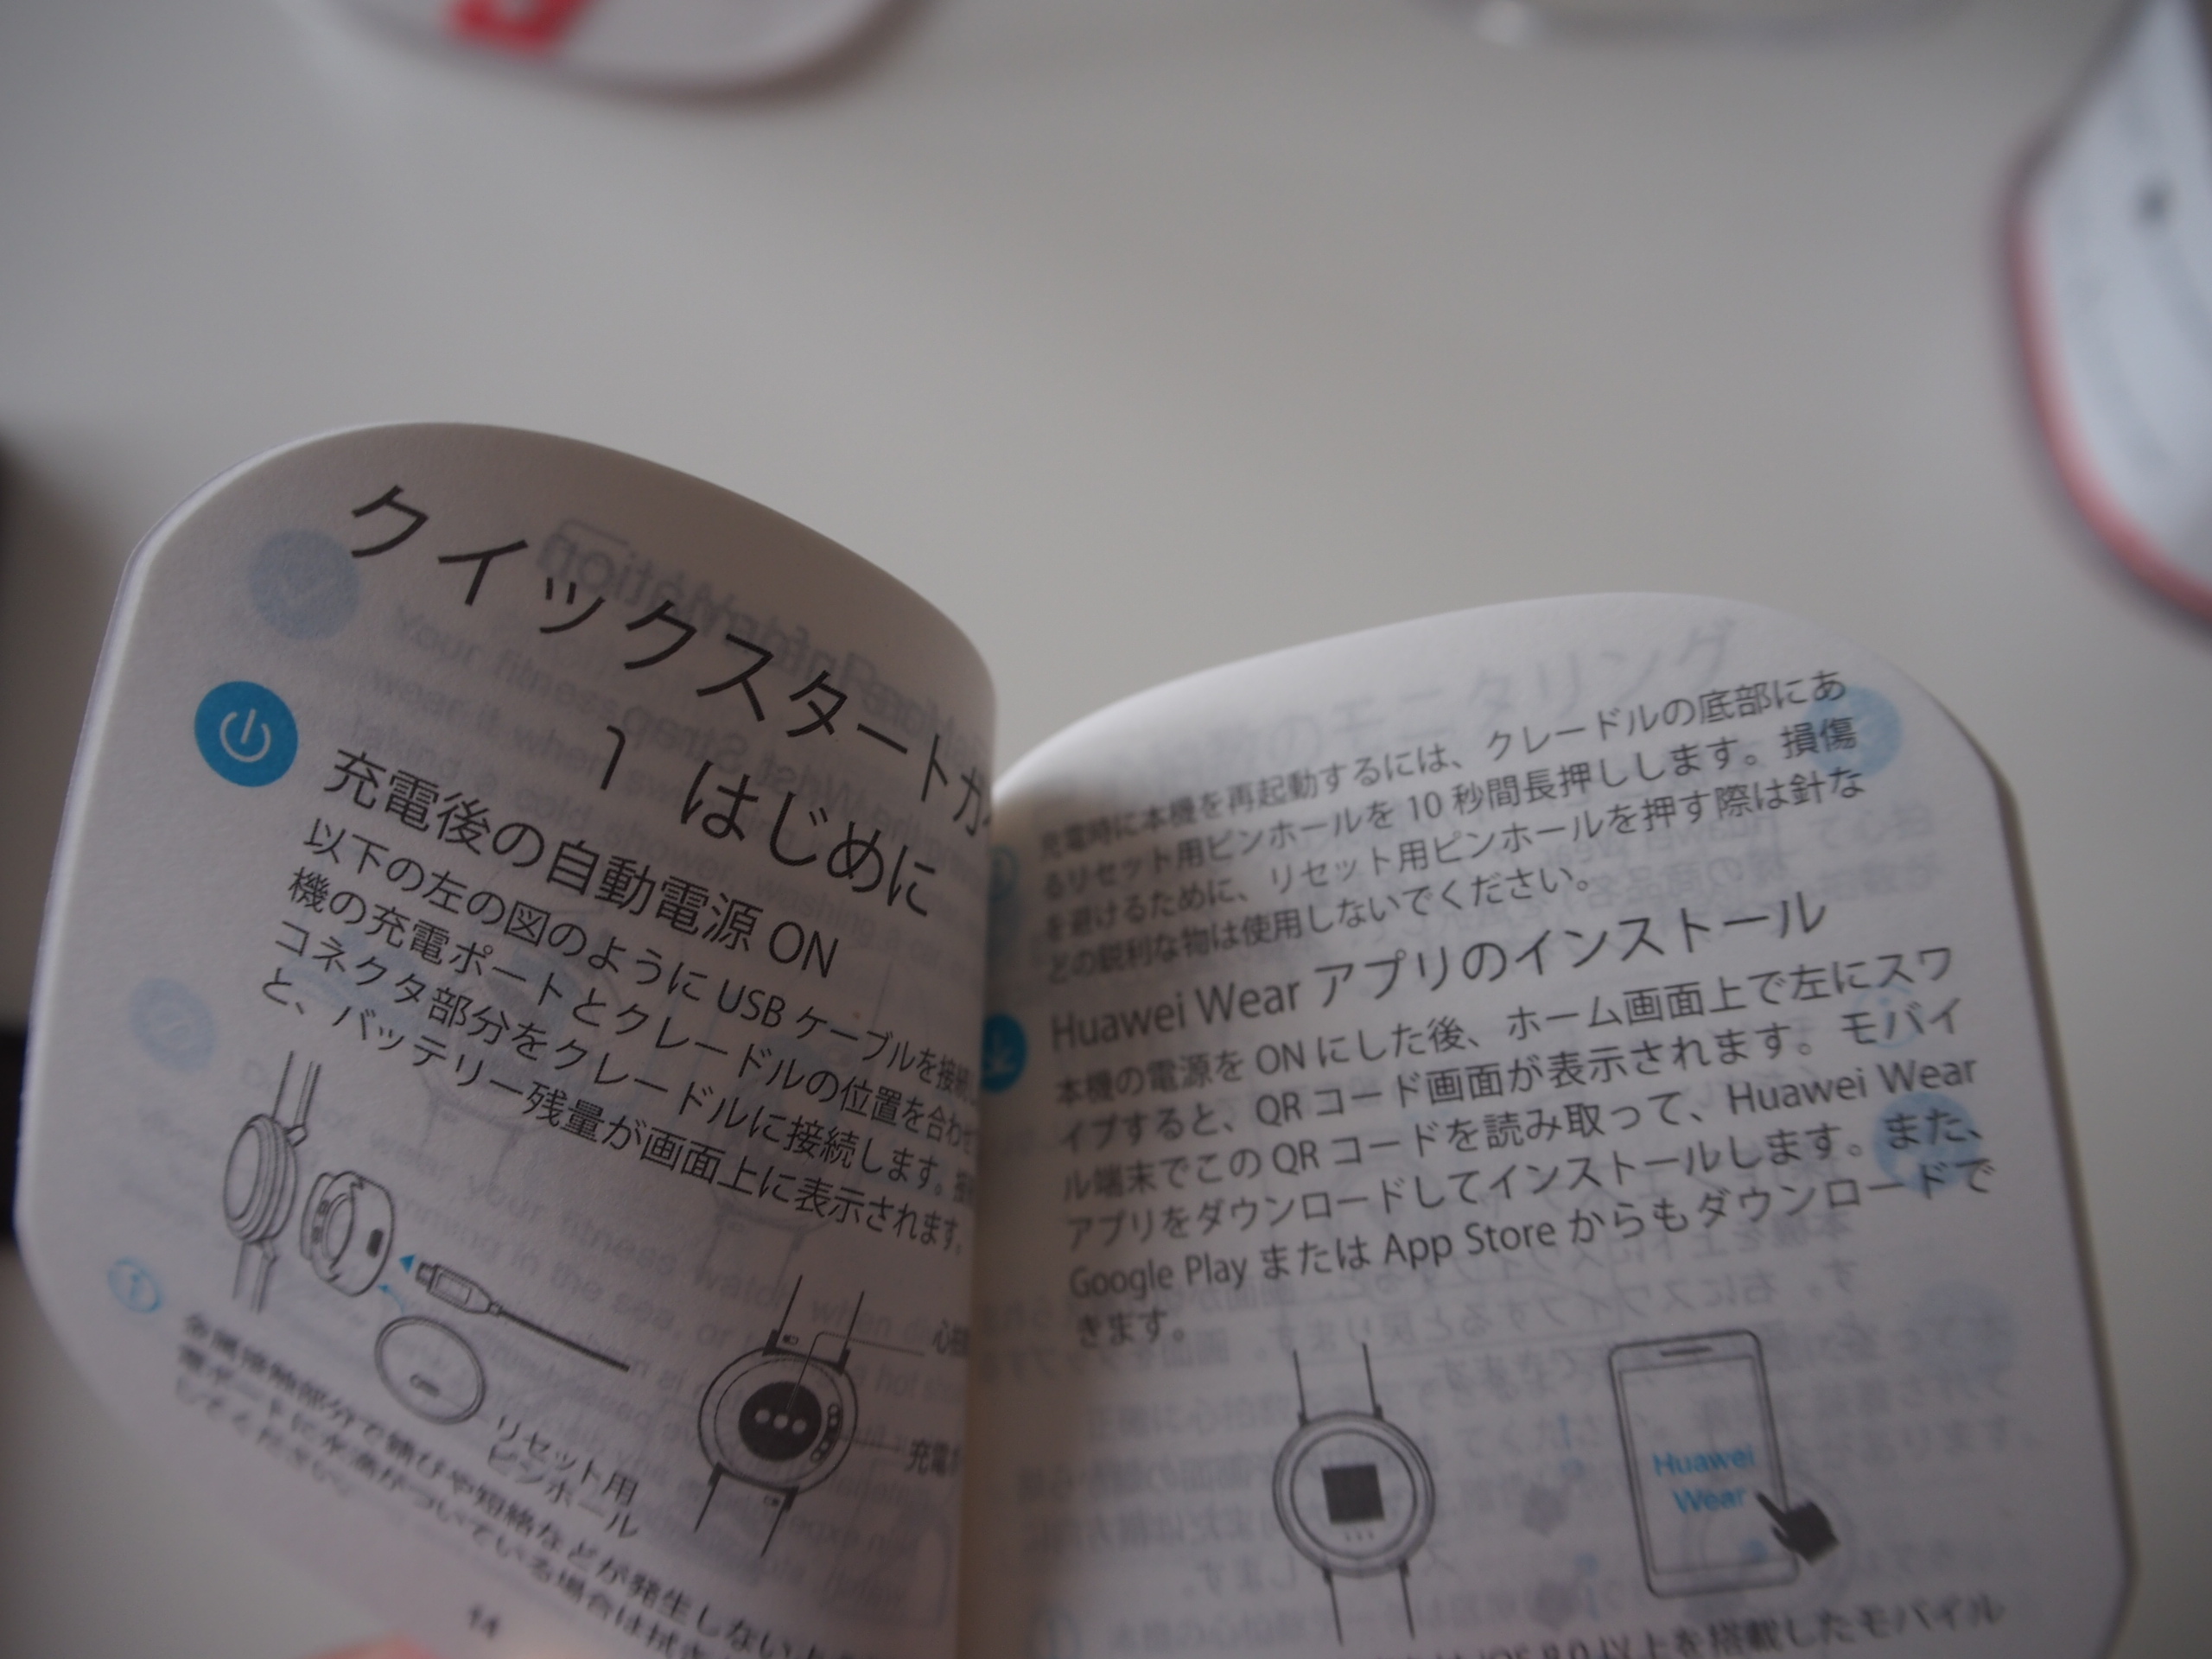 クイックスタートガ
1 はじめに
充電後の自動電源 ON
以下の左の図のように USB ケーブルを接続
機の充電ポートとクレードルの位置を合わせ
コネクタ部分をクレードルに接続します。接
と、バッテリー残量が画面上に表示されます。
心拍
充電
リセット用
ピンホール
金属接触部分で錆びや短絡などが発生しない
電ポートに水滴がついている場合は拭き
してください。
14
充電時に本機を再起動するには、クレードルの底部にあ
るリセット用ピンホールを 10 秒間長押しします。損傷
を避けるために、リセット用ピンホールを押す際は針な
どの鋭利な物は使用しないでください。
Huawei Wear アプリのインストール
本機の電源を ON にした後、ホーム画面上で左にスワ
イプすると、QR コード画面が表示されます。モバイ
ル端末でこの QR コードを読み取って、Huawei Wear
アプリをダウンロードしてインストールします。また、
Google Play または App Store からもダウンロードで
きます。
Huawei
Wear
以上を搭載したモバイル